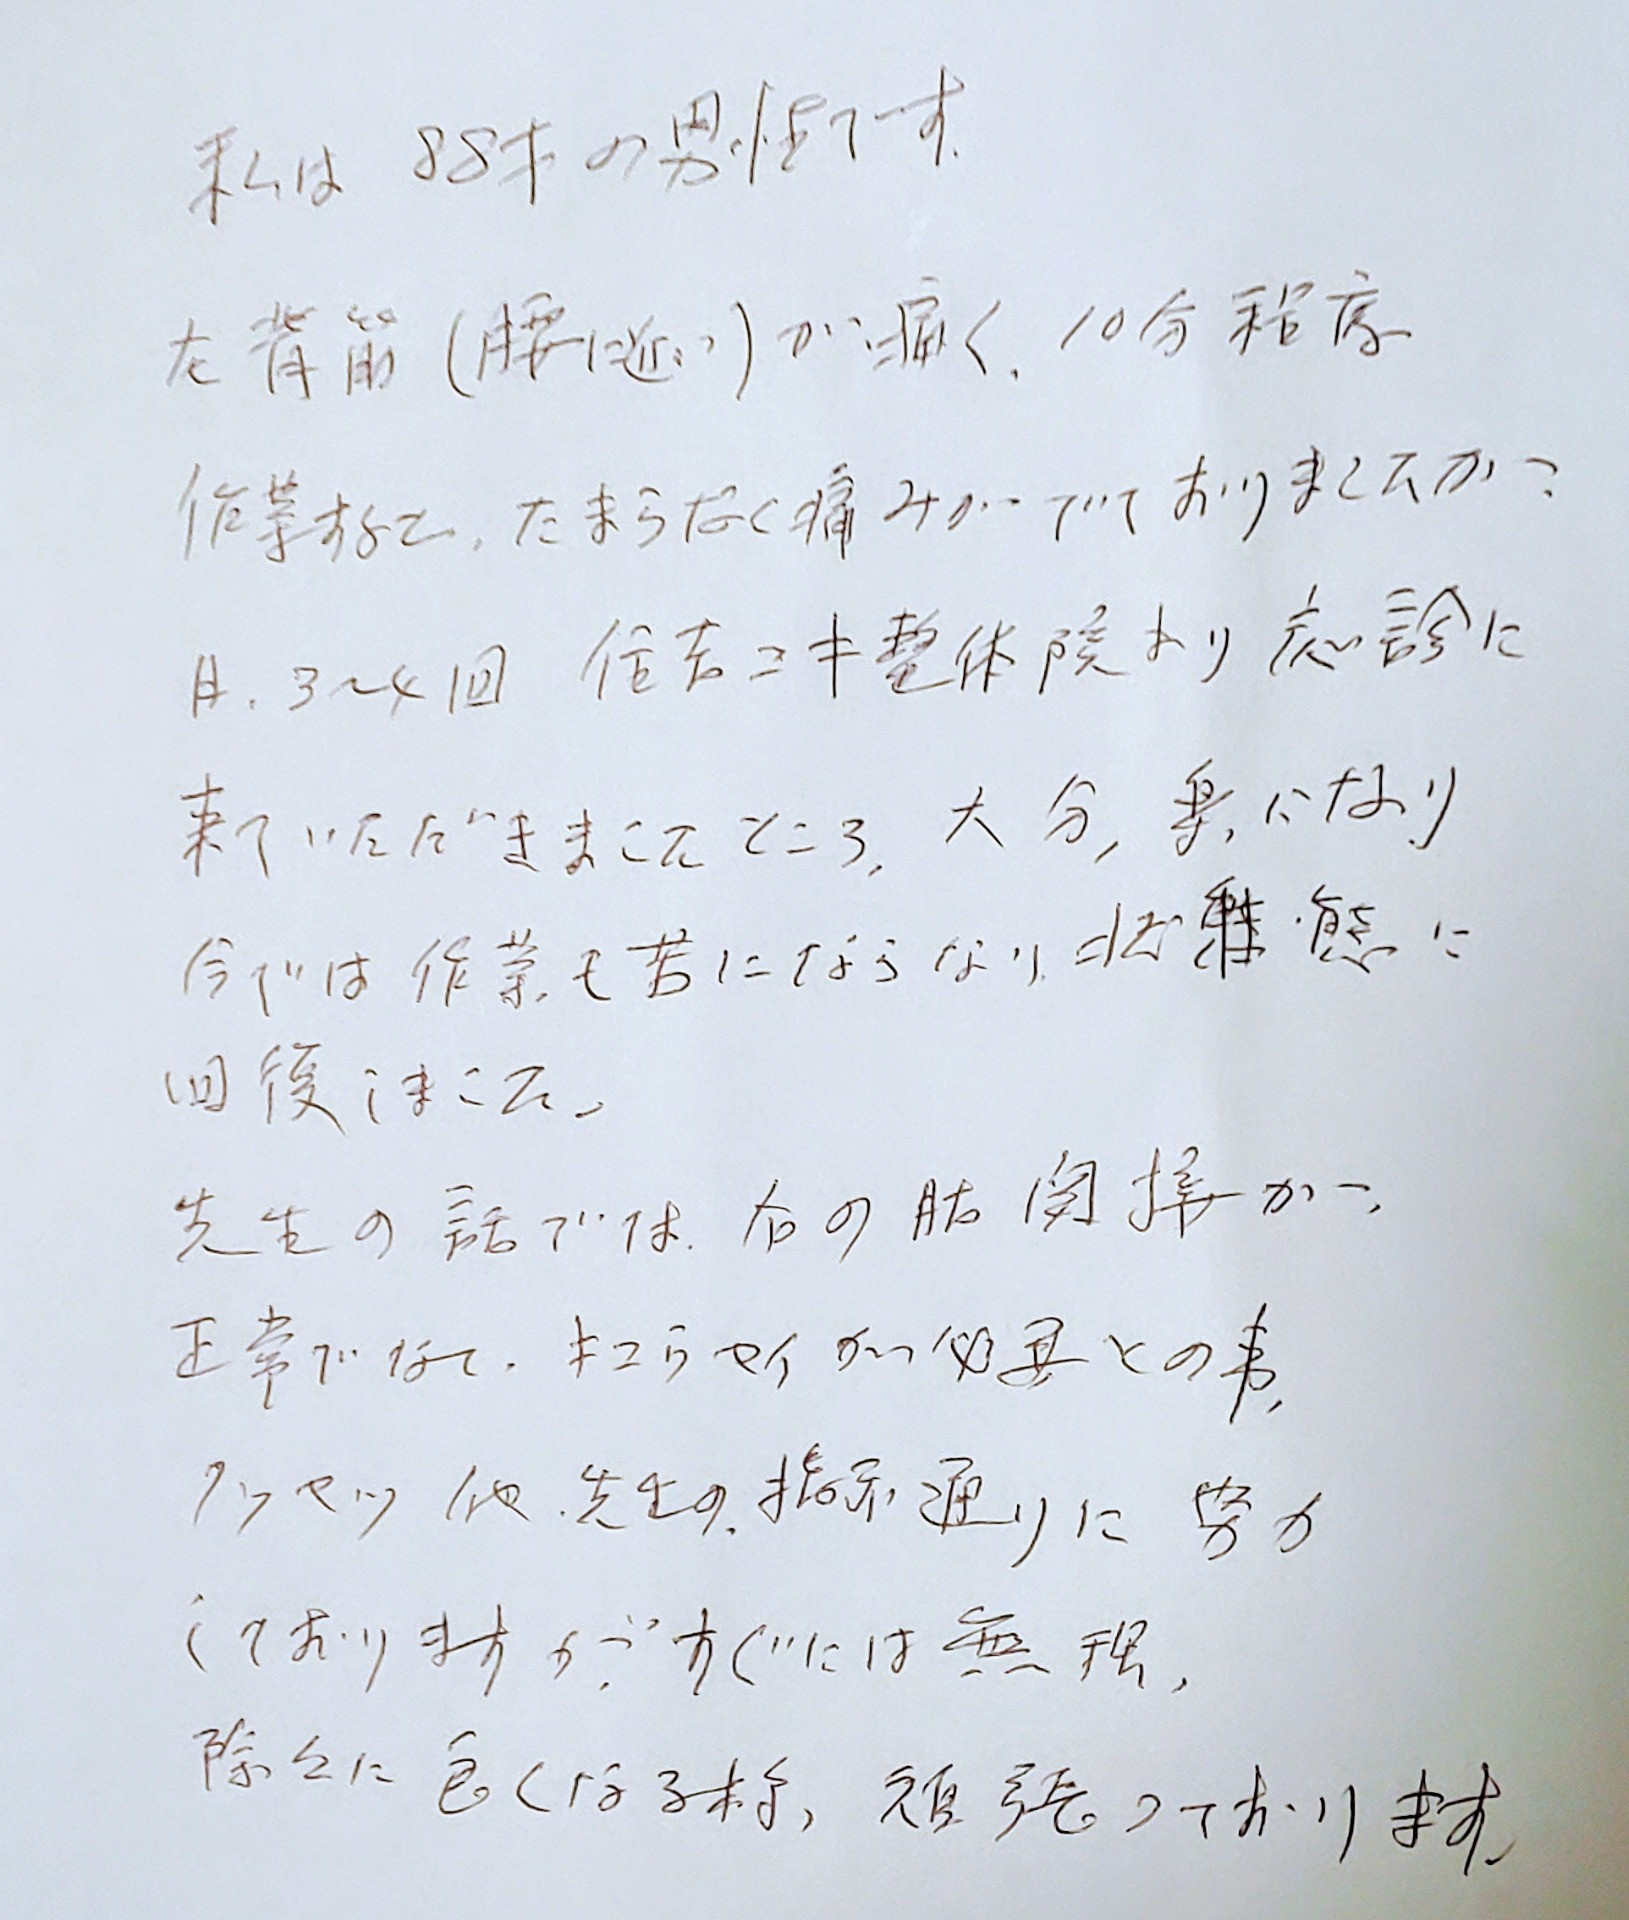 私は 88才の男性です.
左背筋(腰に近い)が痛く、10分程度
作業すると、たまらなく痛みがでておりましたが
月、3〜4回 住吉ユキ整体院より 応診に
来ていただきましたところ、大分、楽になり
今では作業も苦にならない 状態に
回後しました、
先生の話では、右の股関接が、
正常でなく、キョウセイが必要との事、
クッセツ他、先生の、指示通りに努力
しておりますが、すぐには無理、
除々に良くなる様、頑張っております、